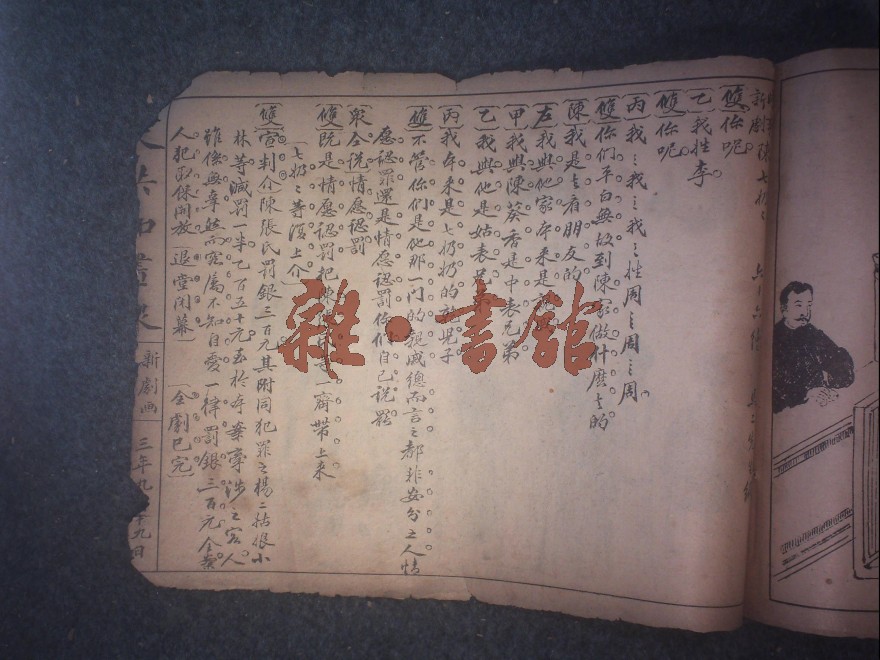 新劇陳七奶
〔雙〕你呢。
〔乙〕我姓李。
〔雙〕你呢。
〔丙〕我…我…我…姓周…周…周。
〔雙〕你們平白無故到陳家做什麽去的
〔陳〕我是去看朋友的
〔左〕我與他家本來是
〔甲〕我與陳葵香是中表兄弟
〔乙〕我與他是姑表兄
〔丙〕我本來是七奶奶的乾兒子
〔雙〕不管你們是他那一門的親戚總而言之都非安分之人情
愿認罪還是情愿認罰你們自己說罷
〔衆〕仝説情愿認罰
〔雙〕既是情愿認罰把陳 一齊帶上來
〔七奶々等復上介〕
〔雙〕宣判介陳張氏罰銀三百元其附同犯罪之楊二姑張小
林等減罰一半乙百五十元至於本案牽涉之客人
雖係無辜然而究属不知自愛一律罰銀三百元全案
人犯取保開放〔退堂閉幕〕〔全劇已完〕
新劇画
三年九 十九日
雜·書館